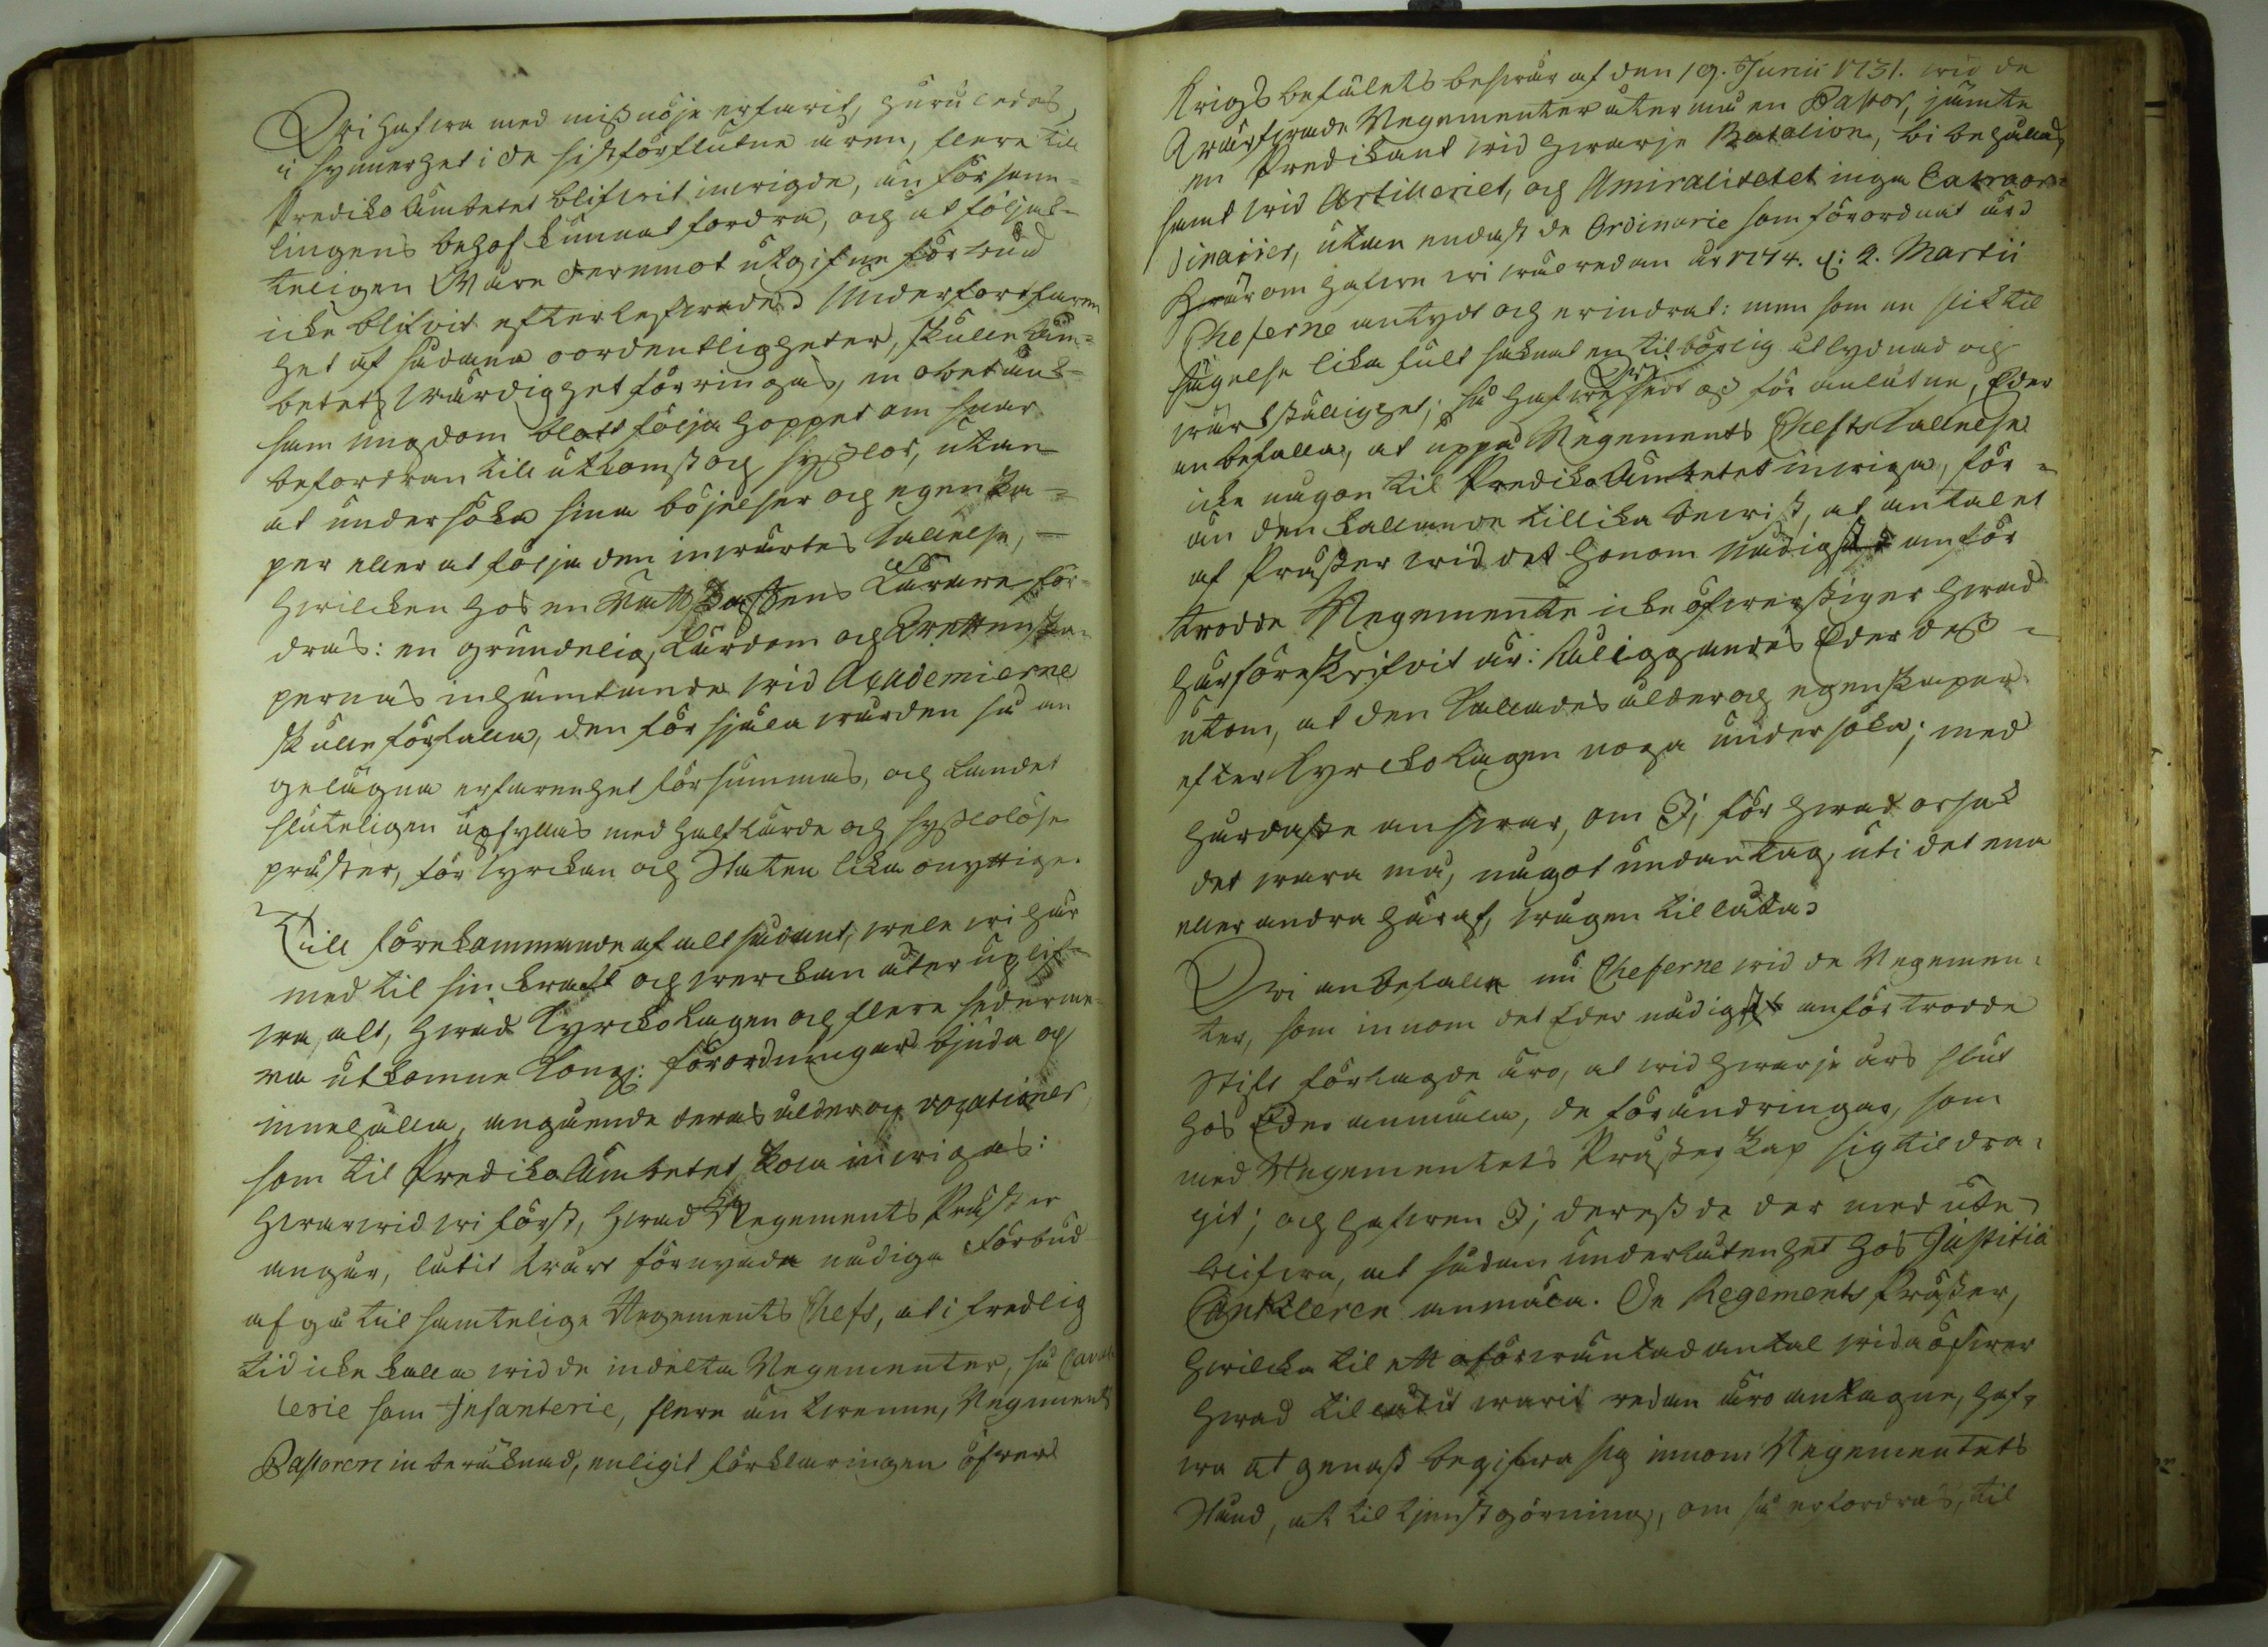 Wi hafwa med missnöje erfarit, huruledes,
i synnerhet i de sistförflutne åren, flere till
Prediko Ämbetet blifwit inwigde, än försam=
lingens behof kunnat fordra, och at följak=
teligen Wåre deremot utgifne förbud
icke blifvit efterlefwade. Under fortfaren=
het af sådana oordentligheter, skulle Äm=
betets wärdighet förringas, en obetänk=
sam ungdom blott följa hoppet om snar
befordran till utkomst och sysslor, utan
at undersöka sina böjelser och egenska=
per eller at följa den inwärtes kallelse,
hwilcken hos en rättskaffens Lärare for=
dras: en grundelig Lärdom och Wettenska=
pernas inhämtande wid Academierne
skulle förfalla, den för själa wården så an
gelägna erfarenhet försummas, och Landet
sluteligen upfyllas med halflärde och sysslolöse
präster, för kyrckan och Staten lika onyttige.
Till förekommande af alt sådant, wele wi här
med til sin kraft och werckan åter uplif=
wa alt, hwad Kyrcko Lagen och flere sederme=
ra utkomne Kongl: förordningar bjuda och
innehålla, angående deras ålder och vocationer,
som til Prediko Ämbetet skola inwigas:
Hwarwid wi först, hwad Regements Präster
angår, låtit wårt förnyade nådiga förbud
afgå til samtelige Regements Chefs, at i fredlig
tid icke kalla wid de indelta Regementer, så Caval
lerie som Infanterie, flere än twenne, Regements
Pastoren inberäknad, enligit förklaringen öfwer
Krigsbefälets beswär af den 19. Junii 1731. wid de
Wärfwade Regementer åter må en Pastor, jämte
en Predikant wid hwarje Batalion, bibehållas,
samt wid Artilleriet, och Amiralitetet inga Extraor=
dinarier, utan endast de Ordinarie som förordnat är.
Hwarom hafwe wi wäl redan år 1774. d: 2. Martii
Cheferne antydt och erindrat: men som en slik til
sägelse lika fult saknat en tilbörlig åtlydnad och
wärkställighet; så hafwe Wi sedt oss för anlåtne, Eder
anbefalla, at uppå Regements Chefs kallelse
icke någon til Prediko Ämbetet inwiga, för=
än den kallande tillika bewist, at antalet
af Präster wid det honom nådigst anför
trodde Regemente icke öfwerstiger hwad
härföreskrifvit är: Åliggandes Eder dess=
utom, at den kallades ålder och egenskaper
efter Kyrcko Lagen noga undersöka; med
hårdaste answar, om I, för hwad orsak
det wara må, något undantag, uti det ena
eller andra häraf, wågen tillåta.
Wi anbefalle nu Cheferne wid de Regemen=
ter, som innom det Eder nådigst anförtrodde
Stift förlagde äro, at wid hwarje års slut
hos Eder anmäla, de förändringar, som
med Regementets Prästerskap sig tildra=
git; och hafwen I, derest de der med ute
blifwa, at sådan underlåtenhet hos Justitiæ
Cantzleren anmäla. De Regements Präster,
hwilcka til ett oförwäntad antal wida öfwer
hwad tillåtit warit redan äro antagne, haf=
wa at genast begifwa sig innom Regementets
Stånd, at til tjenstgörning, om så erfordras, til